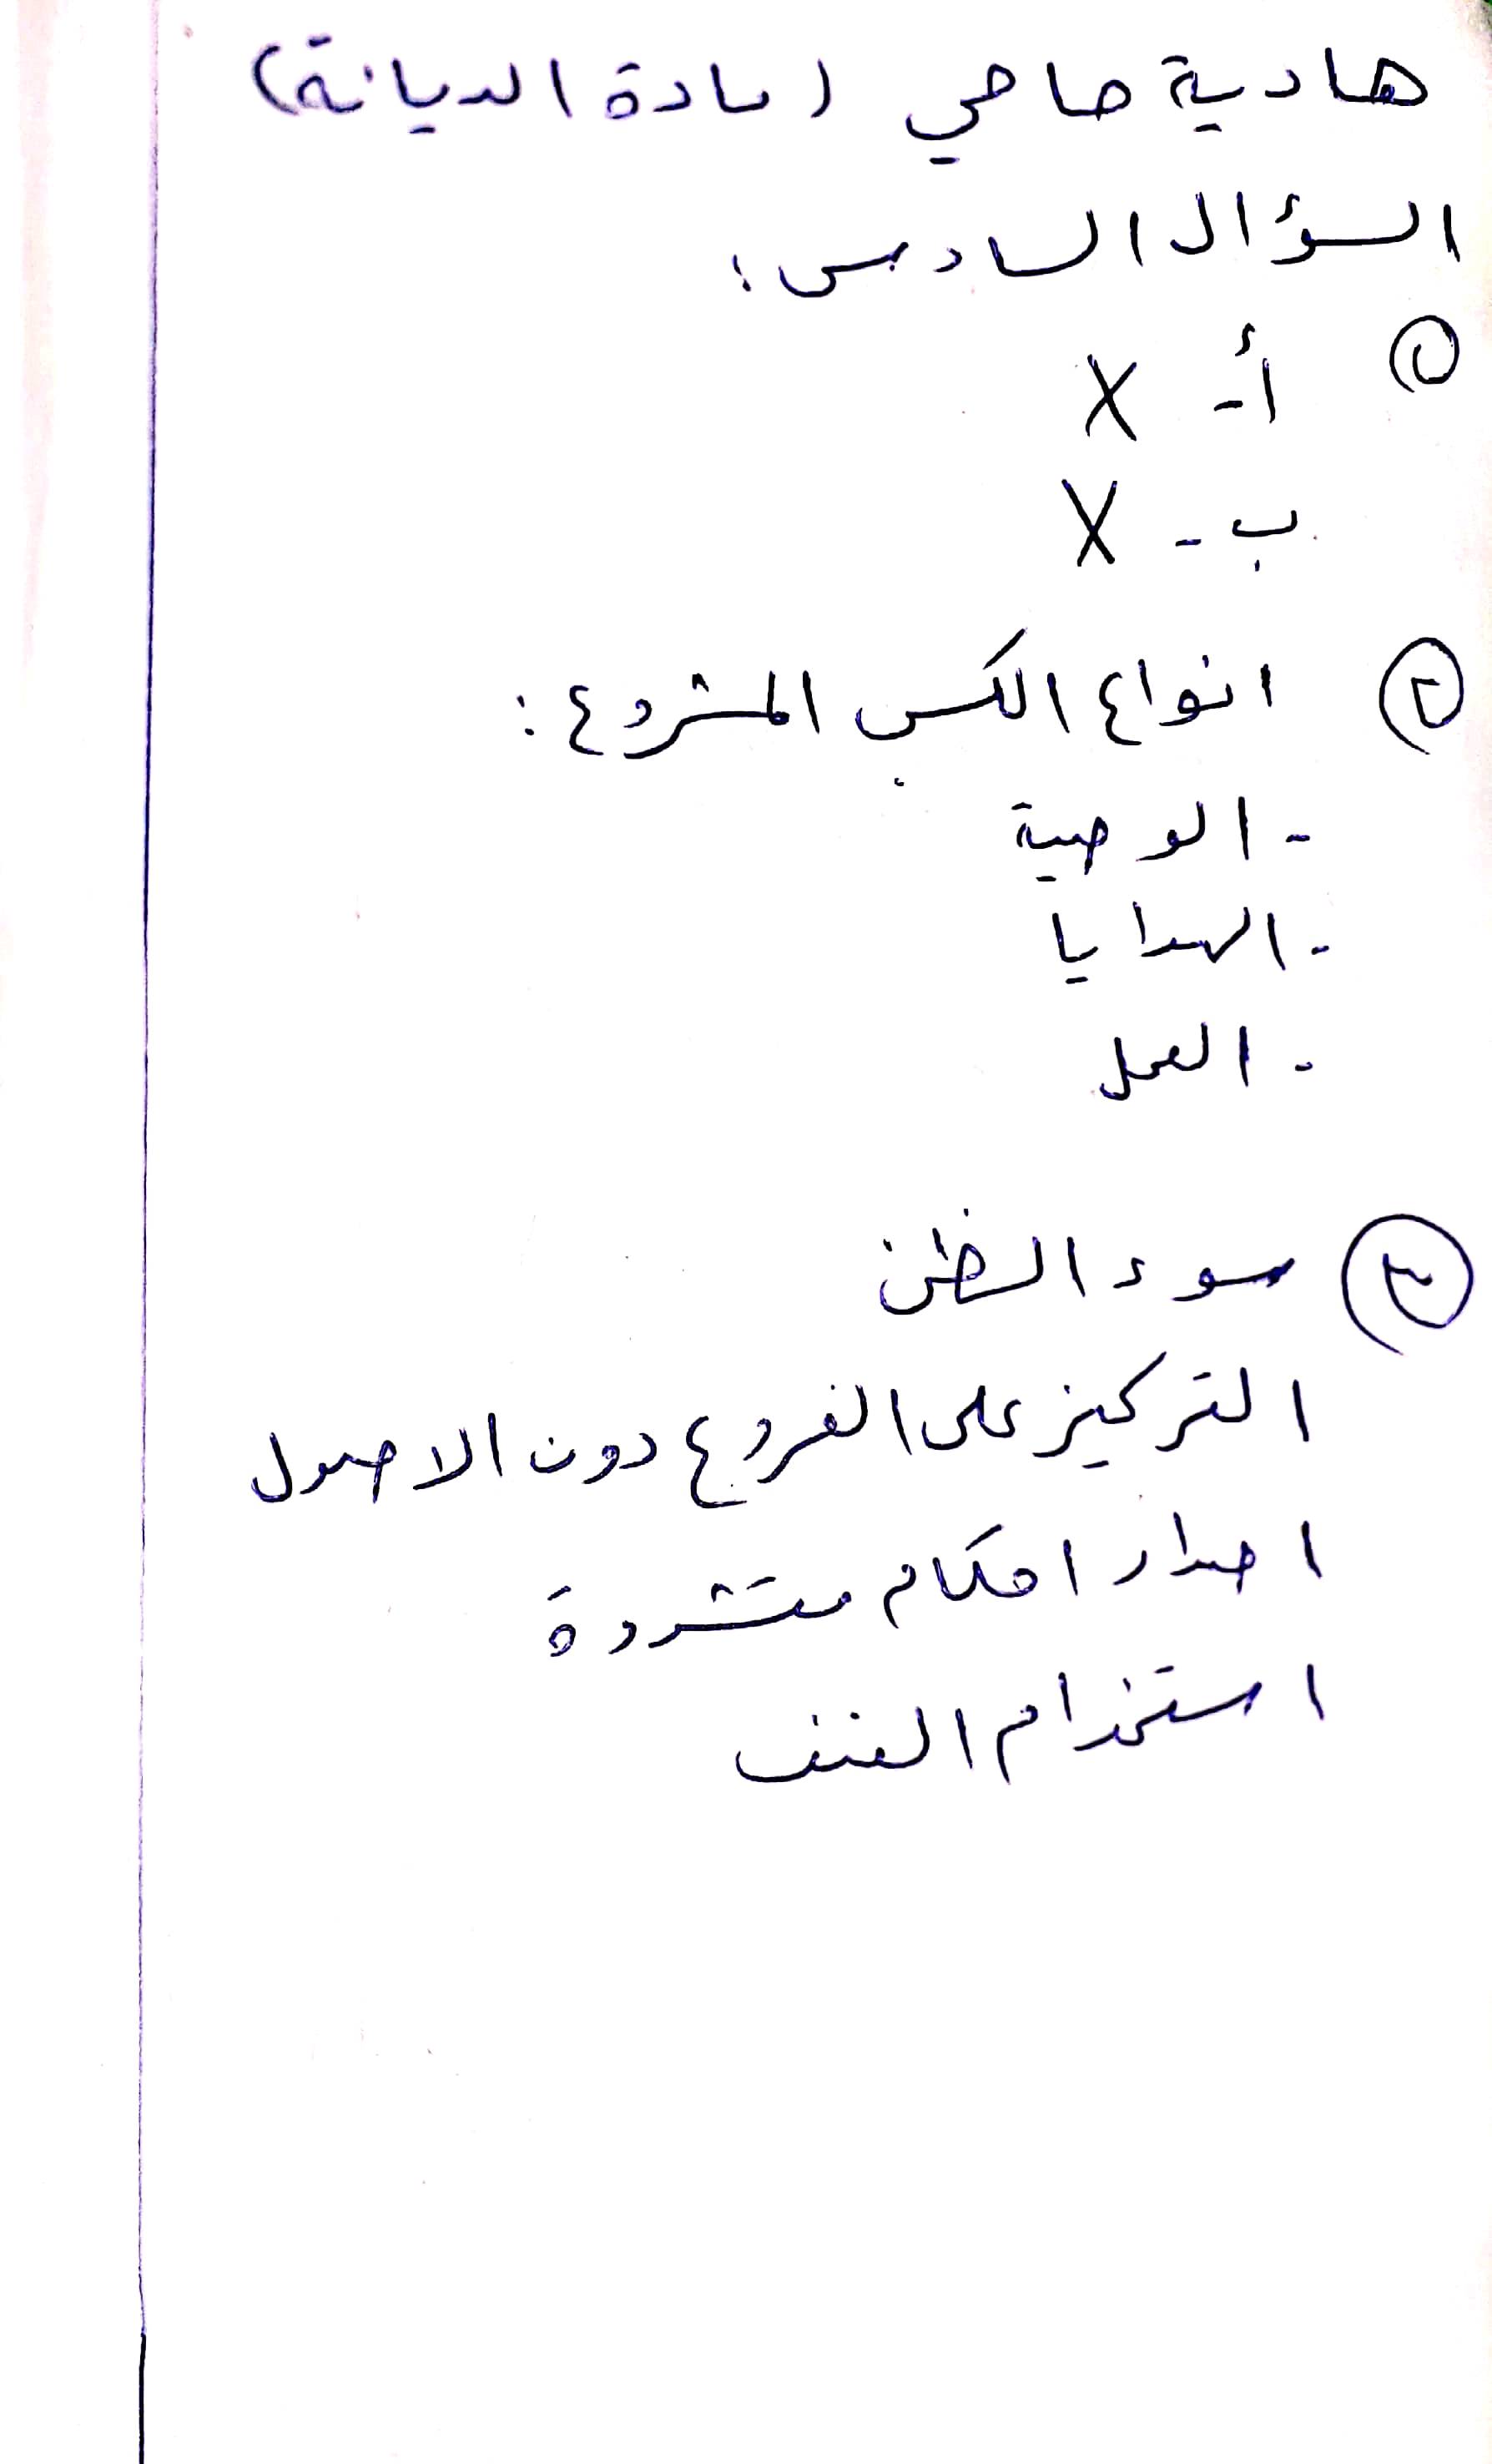 هادية صاحي (مادة الديانة)
السؤال السادس:
١ أ- X
ب- X
٢ انواع الكسب المشروع:
- الوصية
- الهدايا
- العمل
٣ سوء الظن
التركيز على الفروع دون الاصول
اصدار احكام متشددة
استخدام العنف